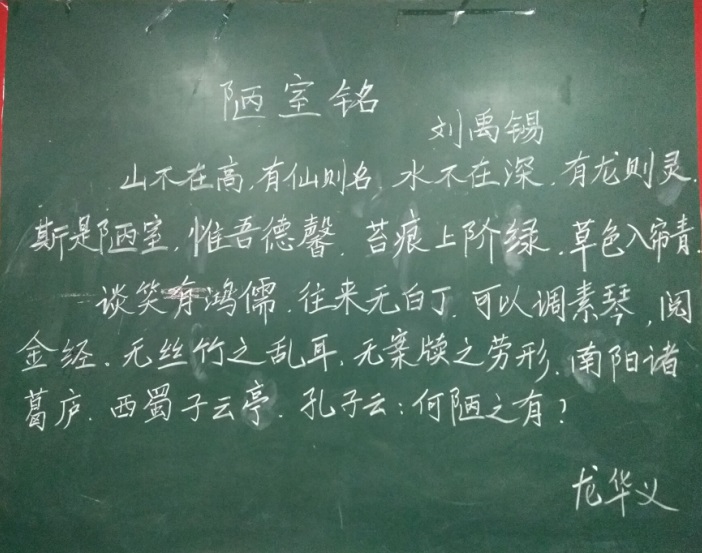 陋室铭
刘禹锡
山不在高.有仙则名.水不在深.有龙则灵.
斯是陋室.惟吾德馨.苔痕上阶绿.草色入帘青.
谈笑有鸿儒.往来无白丁.可以调素琴,阅
金经.无丝竹之乱耳.无案牍之劳形.南阳诸
葛庐.西蜀子云亭.孔子云:何陋之有?
龙华义